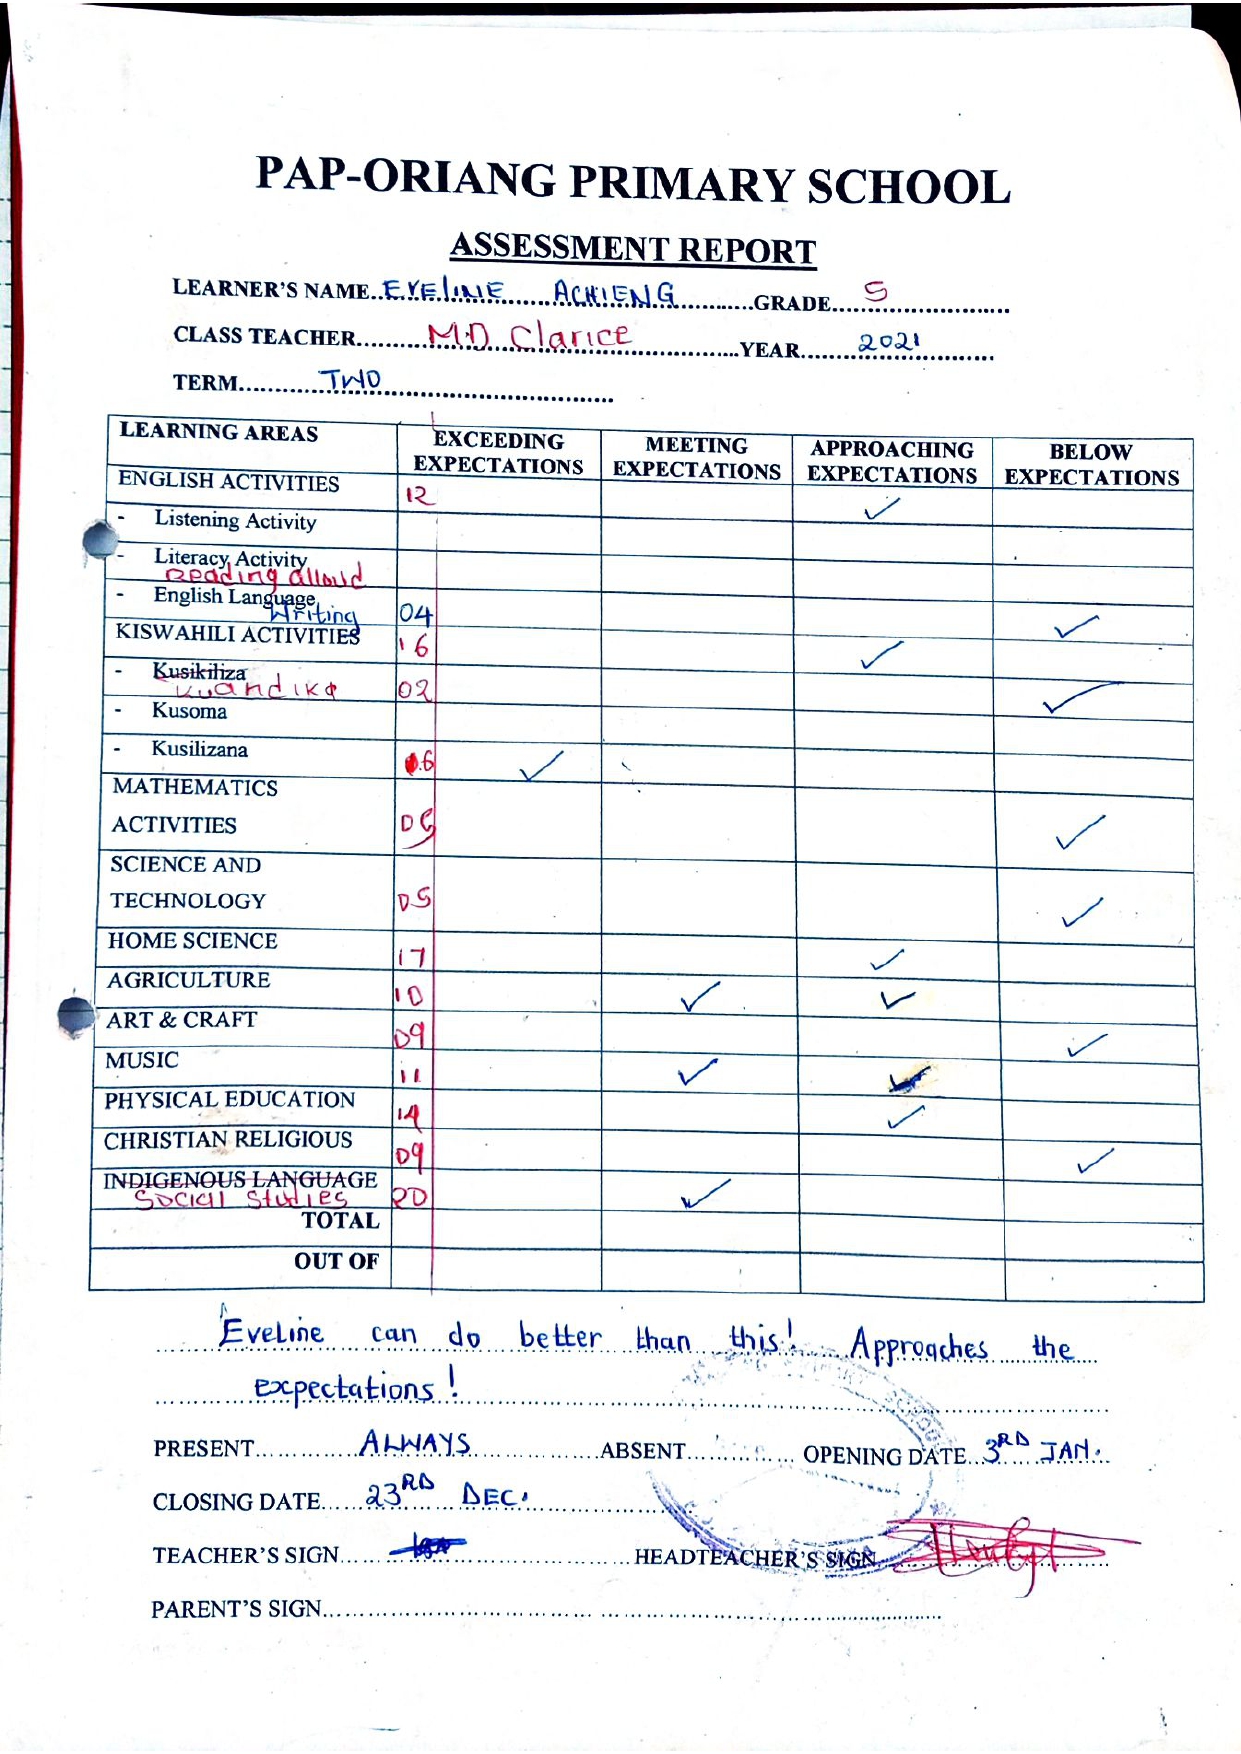 PAP-ORIANG PRIMARY SCHOOL
ASSESSMENT REPORT
LEARNER'S NAME..EVELINE ACHIENG...........GRADE....5......
CLASS TEACHER.........M.D Clarice.............YEAR......2021......
TERM..........TWO..............................
LEARNING AREAS EXCEEDING EXPECTATIONS MEETING EXPECTATIONS APPROACHING EXPECTATIONS BELOW EXPECTATIONS
ENGLISH ACTIVITIES 12 ✓
- Listening Activity
- Literacy Activity
Reading alloud
- English Language
Writing 04 ✓
KISWAHILI ACTIVITIES 16 ✓
- Kusikiliza
Kuandika 02 ✓
- Kusoma
- Kusilizana 06 ✓
MATHEMATICS
ACTIVITIES ✓
SCIENCE AND
TECHNOLOGY 05 ✓
HOME SCIENCE 17 ✓
AGRICULTURE 10 ✓ ✓
ART & CRAFT 09 ✓
MUSIC 11 ✓
PHYSICAL EDUCATION 14 ✓
CHRISTIAN RELIGIOUS 09 ✓
INDIGENOUS LANGUAGE
Social Studies 20 ✓
TOTAL
OUT OF
Eveline can do better than this! Approaches the
expectations!
PRESENT..........ALWAYS............ABSENT............OPENING DATE..3RD JAN.
CLOSING DATE.....23RD DEC.....................
TEACHER'S SIGN..............................HEADTEACHER'S SIGN....................
PARENT'S SIGN............................................................